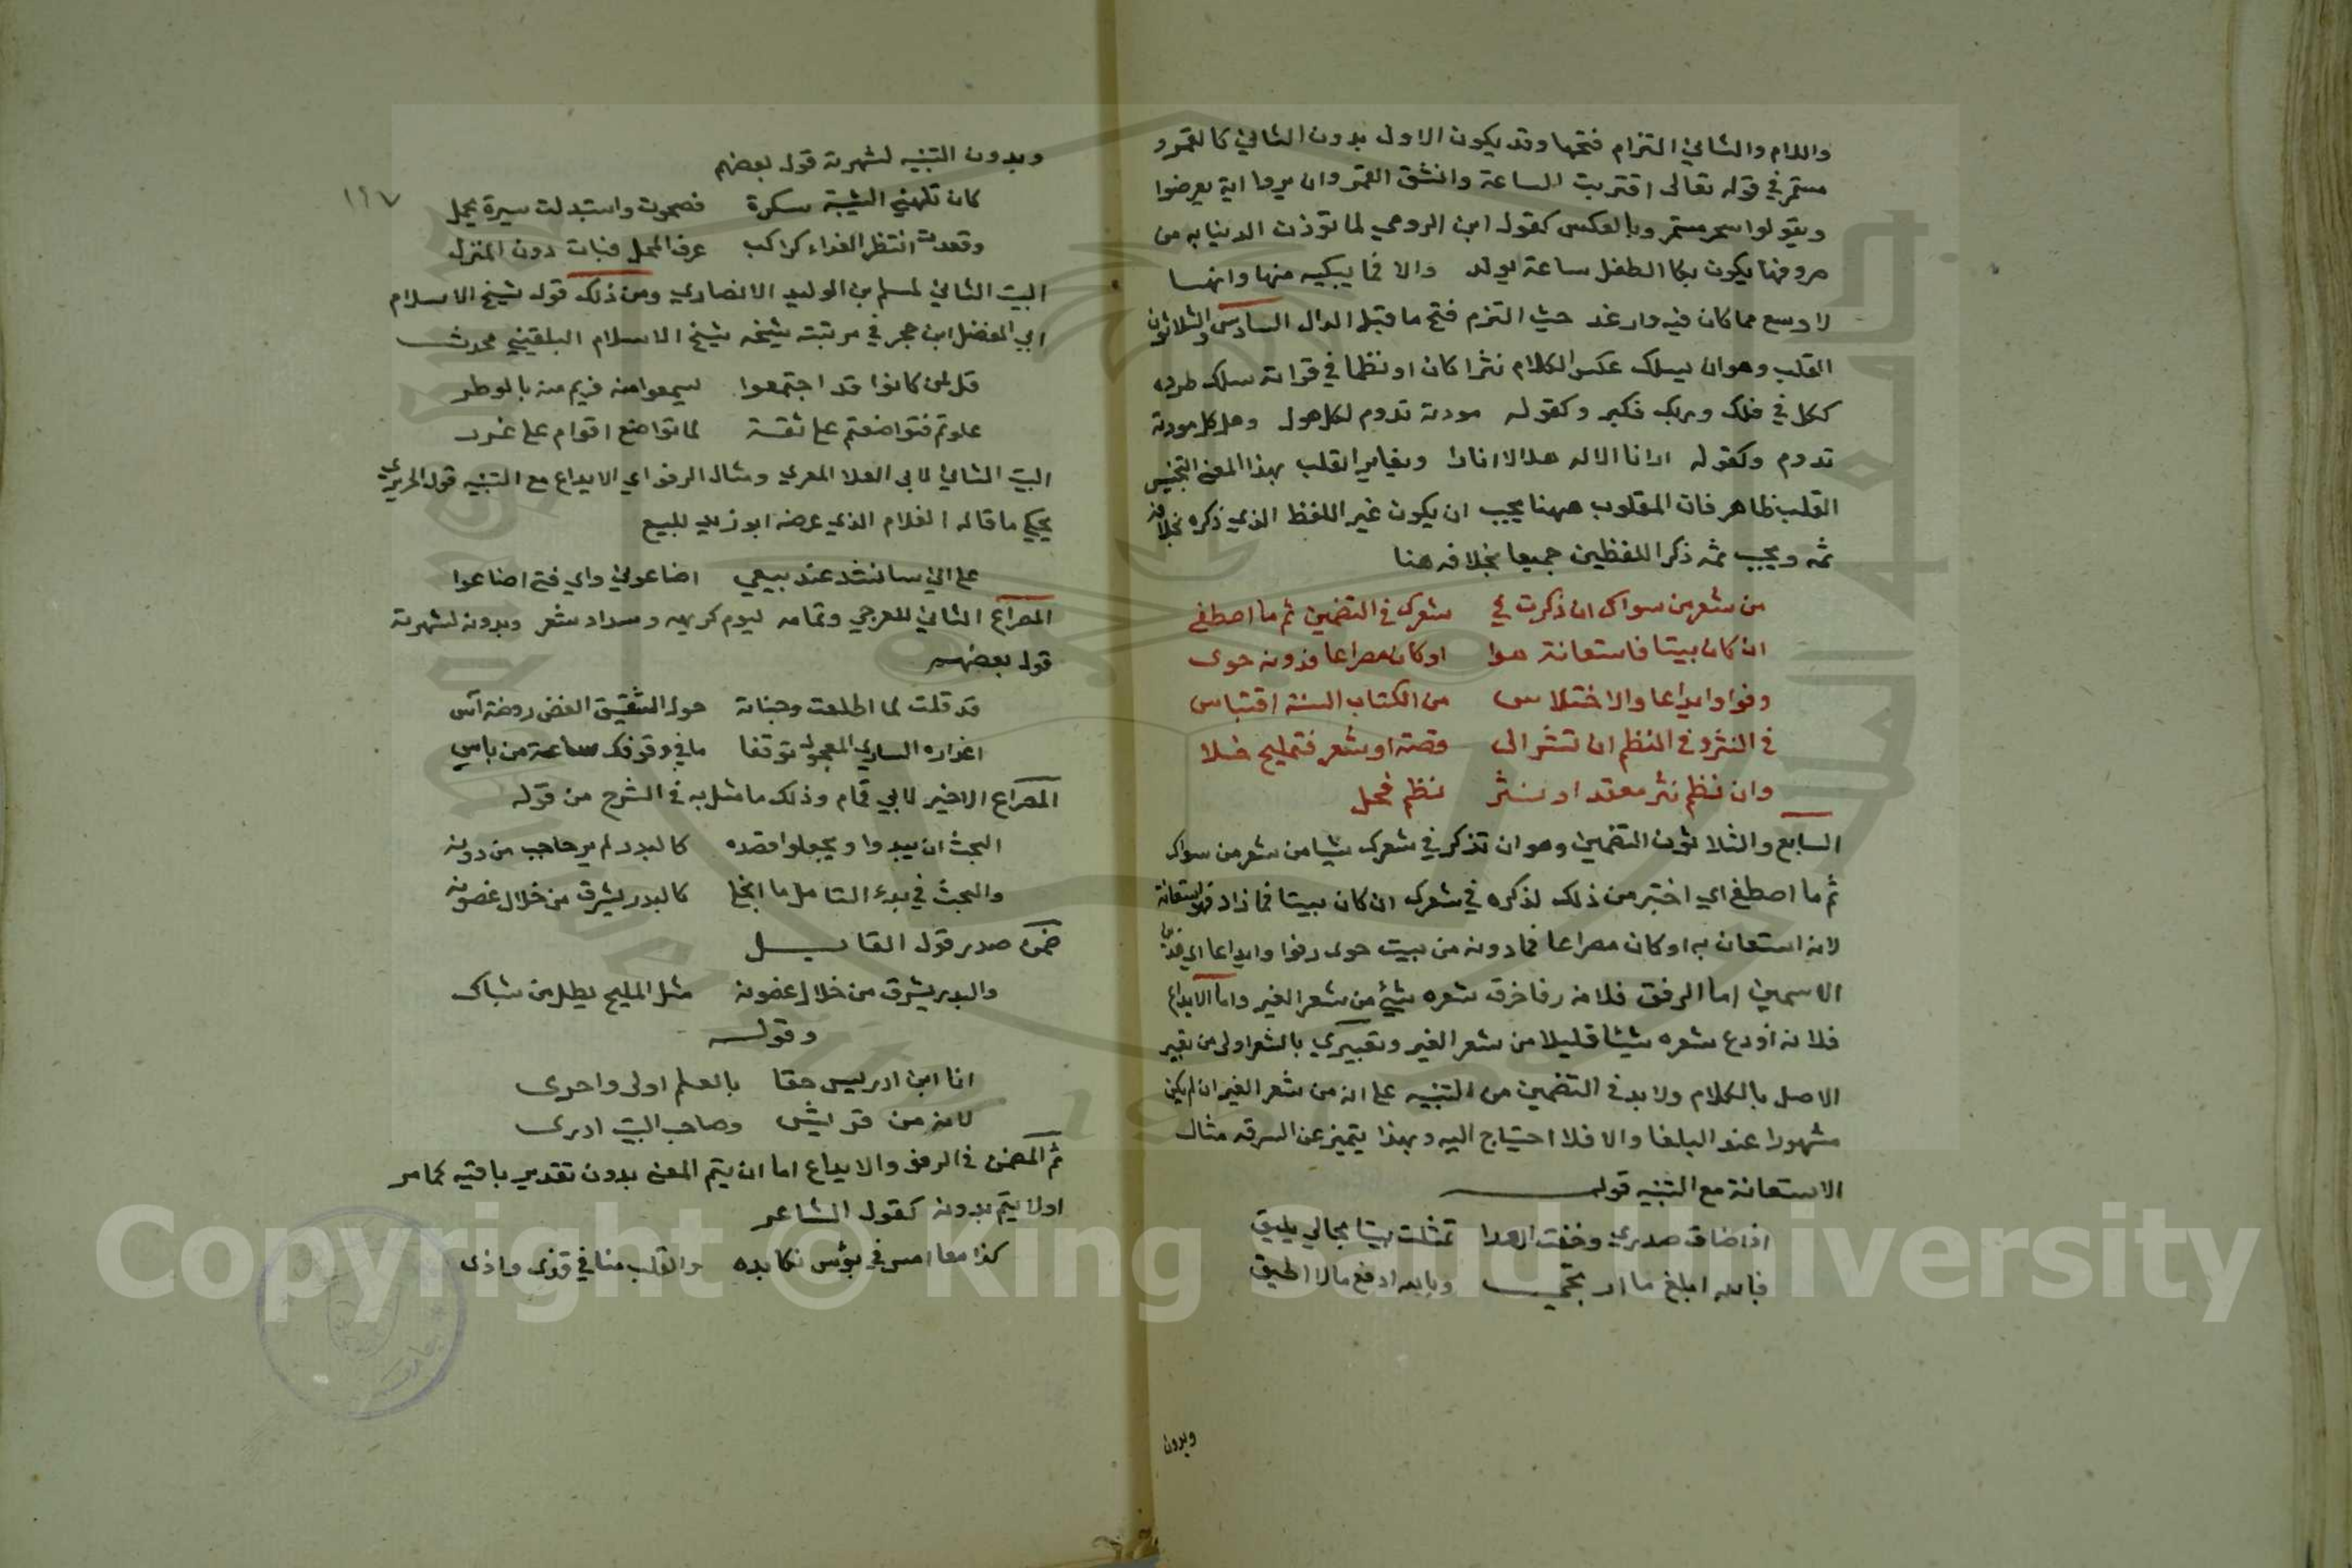 واللام والثاني التزام فتحها وقد يكون الاول بدون الثاني كالقمر و
مستمر في قوله تعالى اقتربت الساعة وانشق القمر وان يروا اية يعرضوا
ويقولوا سحر مستمر وبالعكس كقول ابن الرومي لما توذن الدنيا به من
صروفها يكون بكا الطفل ساعة يولد والا فما يبكيه منها وانها
لاوسع مما كان فيه وارغد حيث التزم فتح ما قبل الدال السادس والثلاثون
القلب وهو ان يسلك عكس الكلام نثرا كان او نظما في قراته سلك طرده
ككل في فلك وربك فكبر وكقوله مودته تدوم لكل هول وهل كل مودته
تدوم وكقوله ارانا الاله هلالا انارا ويغاير القلب بهذا المعنى التجنيس
القلب ظاهر فان المقلوب ههنا يجب ان يكون غير اللفظ الذي ذكره بخلافه
ثمه ويجب ثمه ذكر اللفظين جميعا بخلافه هنا
من شعر من سواك ان ذكرت في شعرك في التضمين ثم ما اصطفي
ان كان بيتا فاستعانة سوا او كان مصراعا فدونه حوى
رفوا وايداعا والاختلاس من الكتاب السنة اقتباس
في النثر وفي النظم ان تشر الى قصة او شعر فتمليح خلا
وان نظم نثر معقد او نثر نظم فحل
السابع والثلاثون التضمين وهو ان تذكر في شعرك شيا من شعر من سواك
ثم ما اصطفي اي اختير من ذلك لذكره في شعرك ان كان بيتا فما زاد فهو استعانة
لانه استعان به او كان مصراعا فما دونه من بيت حوى رفوا وايداعا اي
الاسمين اما الرفو فلانه رفا خرق شعره بشيئ من شعر الغير واما الايداع
فلانه اودع شعره شيئا قليلا من شعر الغير وتعبيري بالشعر اولى من تعبير
الاصل بالكلام ولا بد في التضمين من التنبيه على انه من شعر الغير ان لم يكن
مشهورا عند البلغا والا فلا احتياج اليه وبهذا يتميز عن السرقه مثال
الاستعانة مع التنبيه قوله
اذا ضاق صدري وخفت العدا تمثلت بيتا بحالي يليق
فبالله ابلغ ما ارتجي وبالله ادفع ما لا اطيق
وبدون
١٩٧
وبدون التنبيه لشهرته قول بعضهم
كان تلهيني الشيبة سكرة فصحوت واستبدلت سيرة مجمل
وقعدت انتظر الفناء كراكب عرف المحل فبات دون المنزل
البيت الثاني لمسلم بن الوليد الانصاري ومن ذلك قول شيخ الاسلام
ابي الفضل ابن حجر في مرتبته شيخه شيخ الاسلام البلقيني محدث
قل لمن كانوا قد اجتمعوا ليسمعوا منه فزيم منه بالوطر
علوتم فتواضعتم على ثقة لما تواضع اقوام على غرر
البيت الثاني لابي العلا المعري ومثال الرفو اي الايداع مع التنبيه قول الحريري
يحكي ما قاله الغلام الذي عرضه ابو زيد للبيع
على اني سانشد عند بيعي اضاعوني واي فتى اضاعوا
المصراع الثاني للعرجي وتمامه ليوم كريهة وسداد ثغر وبدونه لشهرته
قول بعضهم
قد قلت لما اطلعت وجناته حول الشقيق الغض روضة آس
اعذاره الساري العجول توقفا ما في وقوفك ساعة من باس
المصراع الاخير لابي تمام وذلك ما مثل به في الشرح من قوله
البحث ان يبدوا ويجهلوا قصده كالبدر لم ير حاجب من دونه
والبحث في بدء التامل ما انجلى كالبدر يشرق من خلال غصونه
ضمن صدر قول القايل
والبدر يشرق من خلال غصونه مثل المليح يطل من شباك
وقوله
انا ابن ادريس حقا بالعلم اولى واحرى
لانه من قريش وصاحب البيت ادرى
ثم المضمن في الرفو والايداع اما ان يتم المعنى بدون تقدير باقيه كما مر
او لا يتم بدونه كقول الشاعر
كنا معا امس في بؤس نكابده والقلب منا في قذى واذى
Copyright © King Saud University